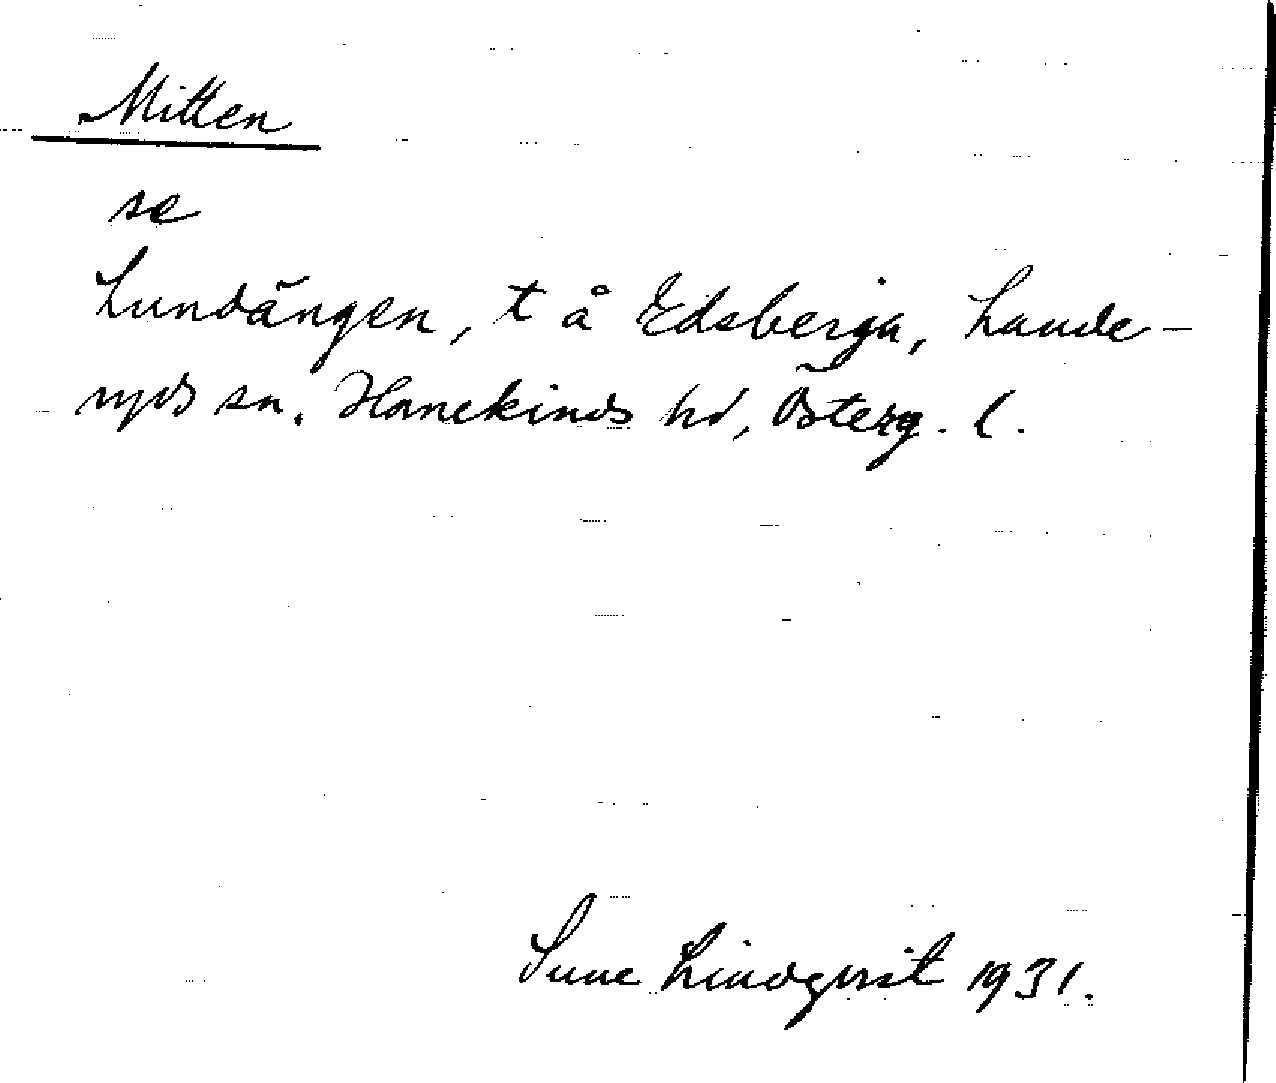 Mitten
se
Lundängen, t å Edsberga, Lande-
ryds sn. Hanekinds hd, Österg. l.
Sune Lindqvist 1931.